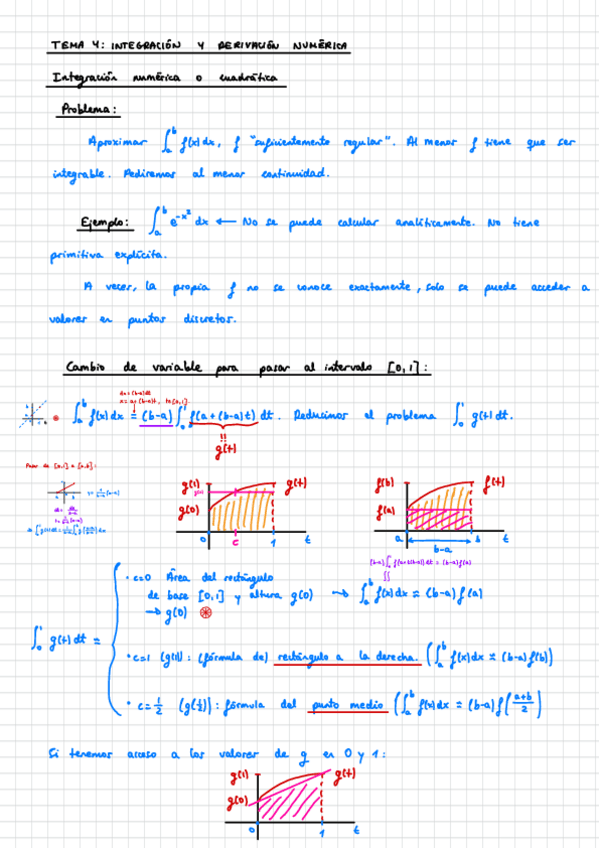 TEMA 4: INTEGRACIÓN Y DERIVACIÓN NUMÉRICA
Integración numérica o cuadrática
Problema:
Aproximar ∫_a^b f(x) dx, f "suficientemente regular". Al menos f tiene que ser
integrable. Pediremos al menos continuidad.
Ejemplo: ∫_a^b e^{-x²} dx ← No se puede calcular analíticamente. No tiene
primitiva explícita.
A veces, la propia f no se conoce exactamente, solo se puede acceder a
valores en puntos discretos.
Cambio de variable para pasar al intervalo [0,1]:
dx = (b-a)dt
x = a+(b-a)t, t∈[0,1]
∫_a^b f(x) dx = (b-a) ∫_0^1 f(a+(b-a)t) dt. Reducimos el problema ∫_0^1 g(t) dt.
g(t)
Pasar de [0,1] a [a,b]:
g(1) g(t)
g(0)
0 c 1 t
f(b) f(t)
f(a)
a b t
b-a
(b-a) ∫_0^1 f(a+(b-a)t) dt ≈ (b-a) f(a)
∫_0^1 g(t) dt ≈
· c=0 Área del rectángulo
de base [0,1] y altura g(0) → ∫_a^b f(x) dx ≈ (b-a) f(a)
→ g(0)
· c=1 (g(1)): (fórmula de) rectángulo a la derecha. (∫_a^b f(x) dx ≈ (b-a) f(b))
· c=½ (g(½)): fórmula del punto medio (∫_a^b f(x) dx ≈ (b-a) f((a+b)/2))
Si tenemos acceso a los valores de g en 0 y 1:
g(1) g(t)
g(0)
0 1 t